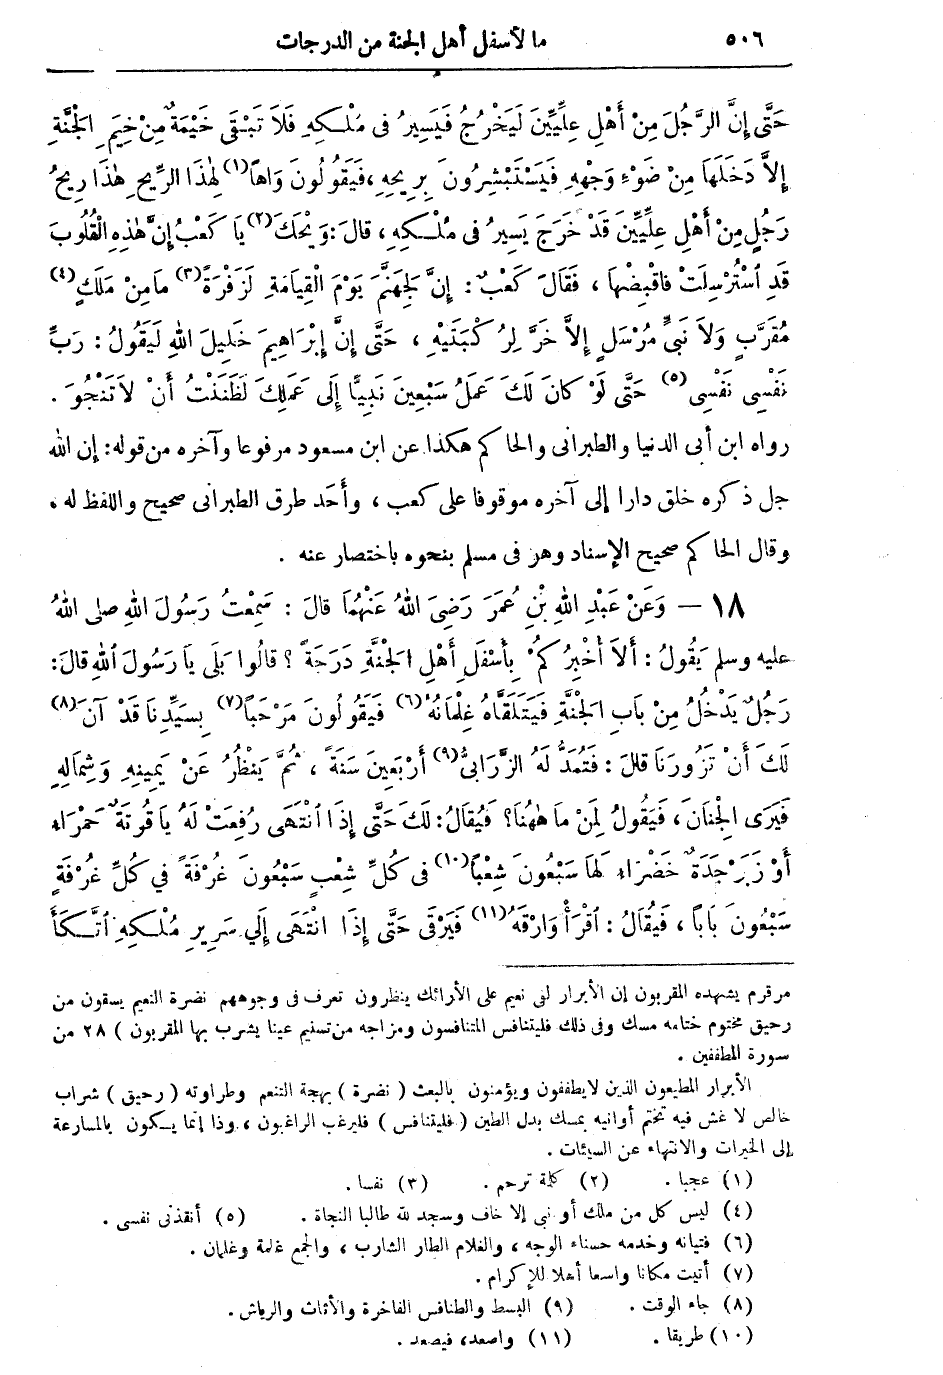 ٥٠٦ ما لأسفل أهل الجنة من الدرجات
حَتَّى إِنَّ الرَّجُلَ مِنْ أَهْلِ عِلِّيِّينَ لَيَخْرُجُ فَيَسِيرُ فى مُلْكِهِ فَلاَ تَبْقَى خَيْمَةٌ مِنْ خِيَمِ الْجَنَّةِ
إِلاَّ دَخَلَهَا مِنْ ضَوْءِ وَجْهِهِ فَيَسْتَبْشِرُونَ بِرِيحِهِ، فَيَقُولُونَ وَاهاً(١) لِهٰذَا الرِّيحِ هٰذَا رِيحُ
رَجُلٍ مِنْ أَهْلِ عِلِّيِّينَ قَدْ خَرَجَ يَسِيرُ فى مُلْكِهِ، قالَ: وَيْحَكَ(٢) يَا كَعْبُ إِنَّ هٰذِهِ الْقُلُوبَ
قَدِ اسْتُرْسِلَتْ فاقْبِضْهَا، فَقَالَ كَعْبٌ: إِنَّ لِجَهَنَّمَ يَوْمَ الْقِيَامَةِ لَزَفْرَةً(٣) مَامِنْ مَلَكٍ(٤)
مُقَرَّبٍ وَلاَ نَبِىٍّ مُرْسَلٍ إِلاَّ خَرَّ لِرُكْبَتَيْهِ، حَتَّى إِنَّ إِبْرَاهِيمَ خَلِيلَ اللهِ لَيَقُولُ: رَبِّ
نَفْسِى نَفْسِى(٥) حَتَّى لَوْ كانَ لَكَ عَمَلُ سَبْعِينَ نَبِيًّا إِلَى عَمَلِكَ لَظَنَنْتُ أَنْ لاَ تَنْجُوَ.
رواه ابن أبى الدنيا والطبرانى والحاكم هكذا عن ابن مسعود مرفوعا وآخره من قوله: إن الله
جل ذكره خلق دارا إلى آخره موقوفا على كعب، وأَحَد طرق الطبرانى صحيح واللفظ له،
وقال الحاكم صحيح الإسناد وهو فى مسلم بنحوه باختصار عنه.
١٨ — وَعَنْ عَبْدِ اللهِ بْنِ عُمَرَ رَضِىَ اللهُ عَنْهُمَا قالَ: سَمِعْتُ رَسُولَ اللهِ صلى اللهُ
عليه وسلم يَقُولُ: أَلاَ أُخْبِرُكُمْ بِأَسْفَلِ أَهْلِ الْجَنَّةِ دَرَجَةً؟ قالُوا بَلَى يَا رَسُولَ اللهِ قالَ:
رَجُلٌ يَدْخُلُ مِنْ بَابِ الْجَنَّةِ فَيَتَلَقَّاهُ غِلْمَانُهُ(٦) فَيَقُولُونَ مَرْحَباً(٧) بِسَيِّدِنَا قَدْ آنَ(٨)
لَكَ أَنْ تَزُورَنَا قالَ: فَتُمَدُّ لَهُ الزَّرَابِىُّ(٩) أَرْبَعِينَ سَنَةً، ثُمَّ يَنْظُرُ عَنْ يَمِينِهِ وَشِمَالِهِ
فَيَرَى الْجِنَانَ، فَيَقُولُ لِمَنْ ما هٰهُنَا؟ فَيُقَالُ: لَكَ حَتَّى إِذَا انْتَهَى رُفِعَتْ لَهُ يَاقُوتَةٌ حَمْرَاءُ
أَوْ زَبَرْجَدَةٌ خَضْرَاءُ لَهَا سَبْعُونَ شِعْباً(١٠) فى كُلِّ شِعْبٍ سَبْعُونَ غُرْفَةً في كُلِّ غُرْفَةٍ
سَبْعُونَ بَاباً، فَيُقَالُ: اقْرَأْ وَارْقَهُ(١١) فَيَرْقَى حَتَّى إِذَا انْتَهَى إِلَي سَرِيرِ مُلْكِهِ اتَّكَأَ
مرقوم يشهده المقربون إن الأبرار لفى نعيم على الأرائك ينظرون تعرف فى وجوههم نضرة النعيم يسقون من
رحيق مختوم ختامه مسك وفى ذلك فليتنافس المتنافسون ومزاجه من تسنيم عينا يشرب بها المقربون) ٢٨ من
سورة المطففين.
الأبرار المطيعون الذين لا يطففون ويؤمنون بالبعث (نضرة) بهجة التنعم وطراوته (رحيق) شراب
خالص لا غش فيه تختم أوانيه بمسك بدل الطين (فليتنافس) فليرغب الراغبون، وذا إنما يكون بالمسارعة
إلى الخيرات والانتهاء عن السيئات.
(١) عجبا. (٢) كلمة ترحم. (٣) نفسا.
(٤) ليس كل من ملك أو نبى إلا خاف وسجد لله طالبا النجاة. (٥) أنقذنى نفسى.
(٦) فتيانه وخدمه حسناء الوجه، والغلام الطار الشارب، والجمع غلمة وغلمان.
(٧) أتيت مكانا واسعا أهلا للإكرام.
(٨) جاء الوقت. (٩) البسط والطنافس الفاخرة والأثاث والرياش.
(١٠) طريقا. (١١) واصعد، فيصعد.